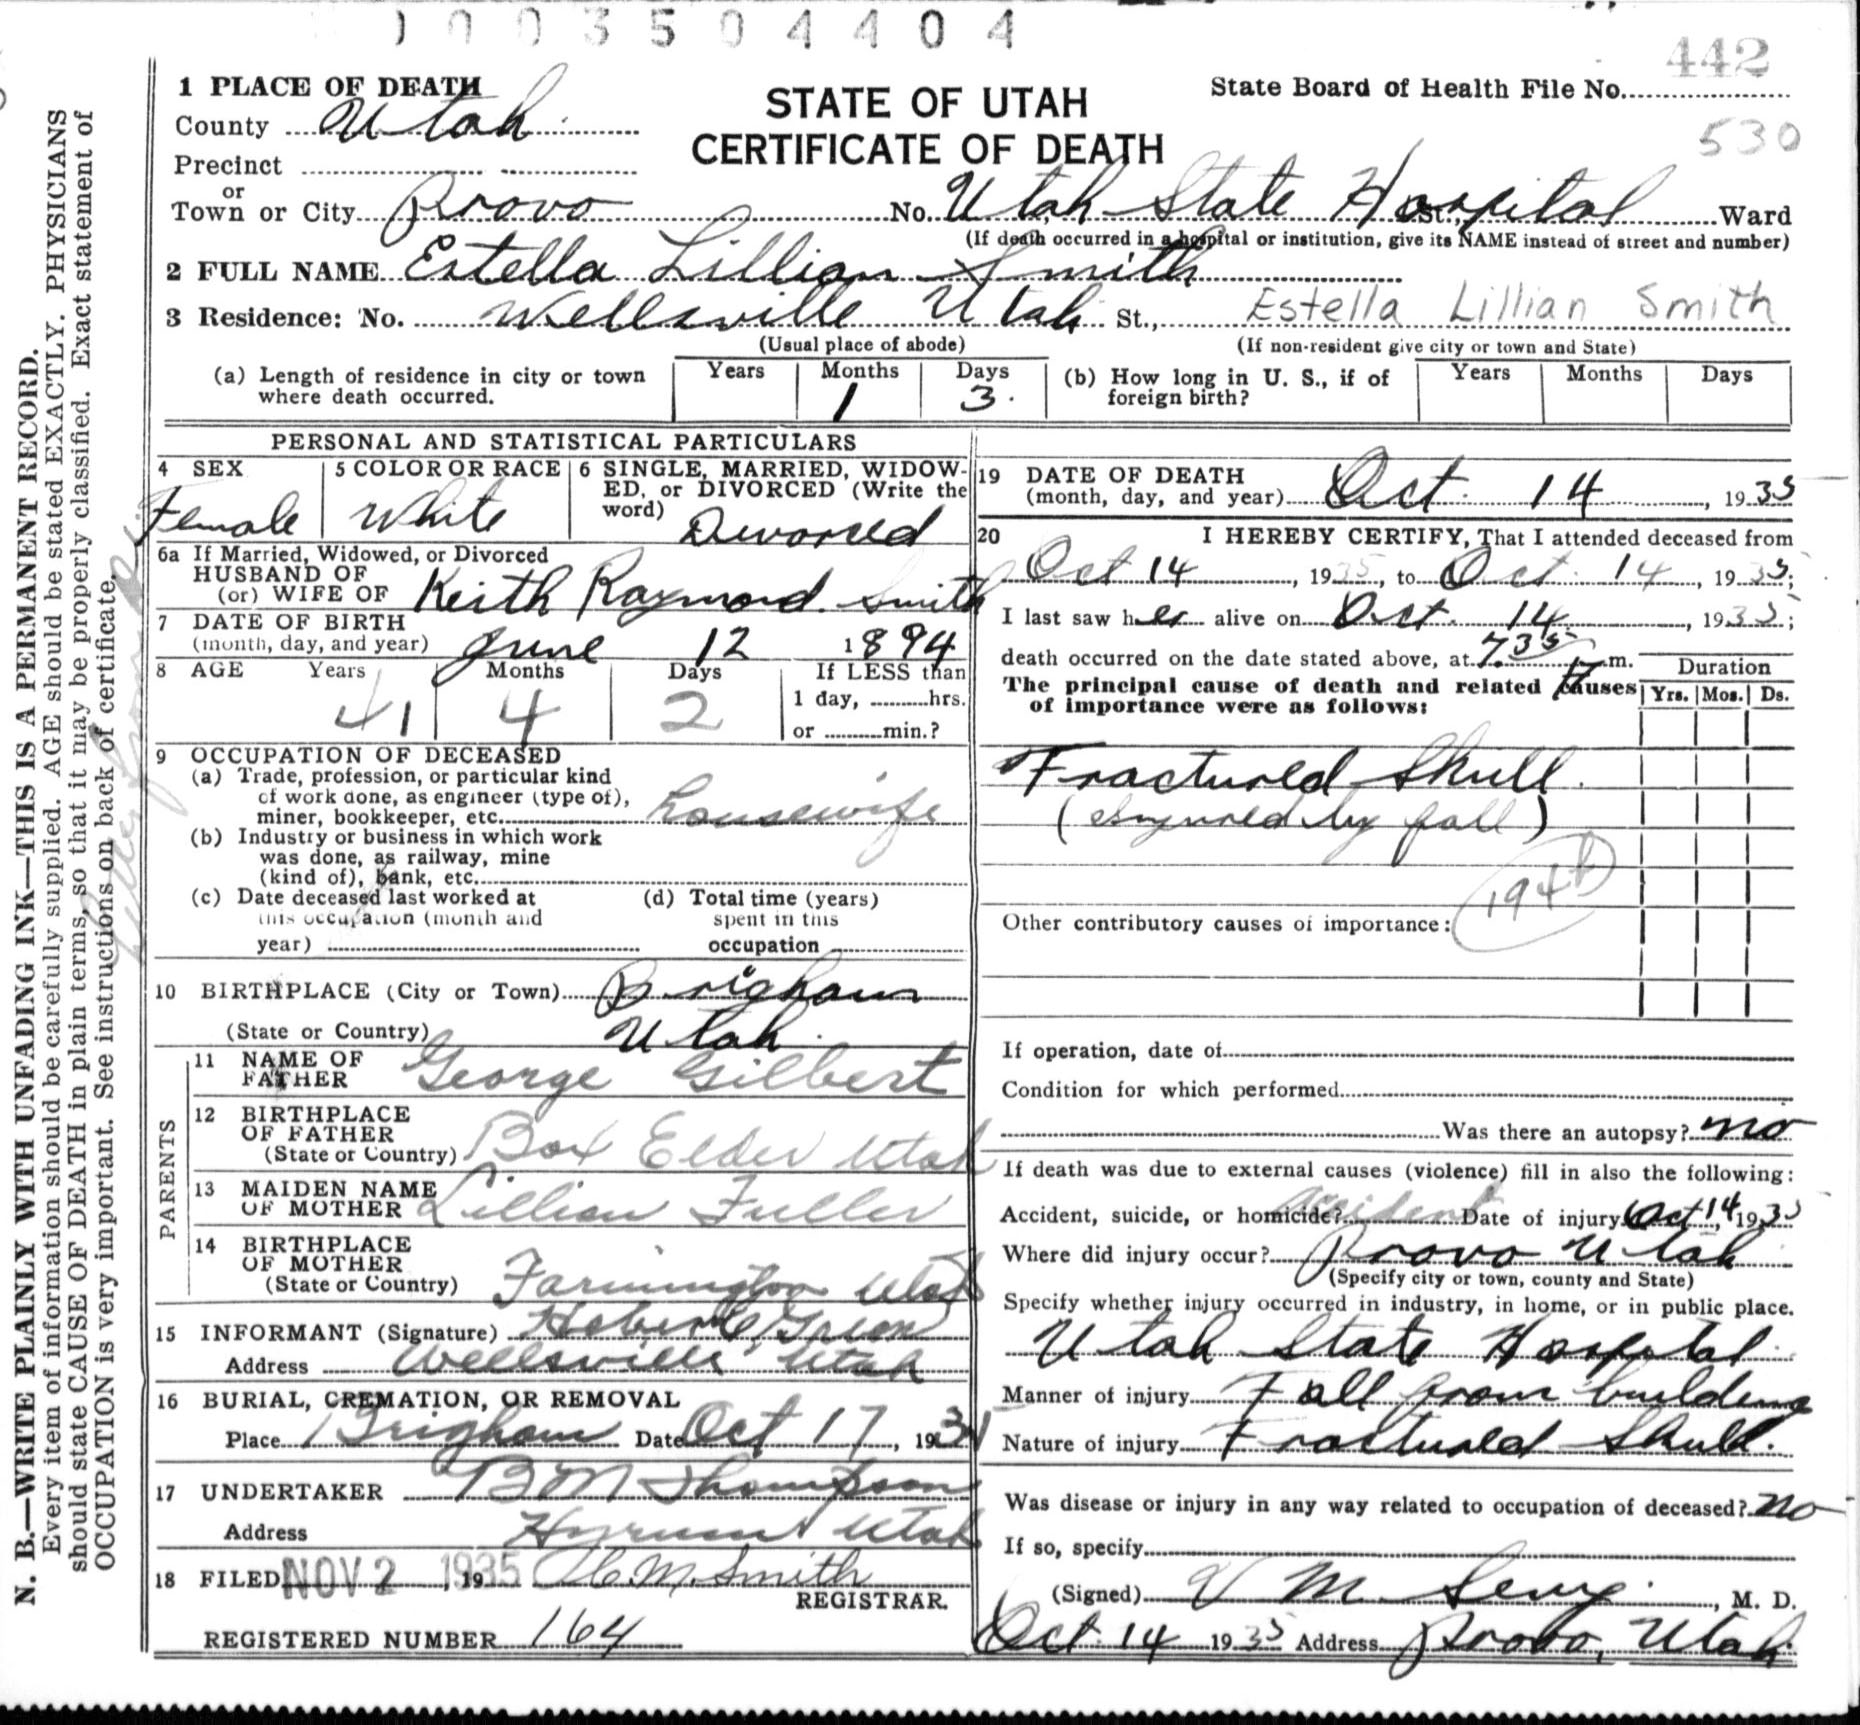 003504404
442
1 PLACE OF DEATH
STATE OF UTAH
CERTIFICATE OF DEATH
State Board of Health File No.
530
County Utah
Precinct
or
Town or City Provo No. Utah State Hospital St., Ward
(If death occurred in a hospital or institution, give its NAME instead of street and number)
2 FULL NAME Estella Lillian Smith
3 Residence: No. Wellsville Utah St., Estella Lillian Smith
(Usual place of abode) (If non-resident give city or town and State)
(a) Length of residence in city or town where death occurred. Years Months 1 Days 3
(b) How long in U. S., if of foreign birth? Years Months Days
PERSONAL AND STATISTICAL PARTICULARS
4 SEX Female
5 COLOR OR RACE White
6 SINGLE, MARRIED, WIDOWED, or DIVORCED (Write the word) Divorced
6a If Married, Widowed, or Divorced
HUSBAND OF
(or) WIFE OF Keith Raymond Smith
7 DATE OF BIRTH
(month, day, and year) June 12 1894
8 AGE Years 41 Months 4 Days 2 If LESS than
1 day, hrs.
or min.?
9 OCCUPATION OF DECEASED
(a) Trade, profession, or particular kind
of work done, as engineer (type of),
miner, bookkeeper, etc. housewife
(b) Industry or business in which work
was done, as railway, mine
(kind of), bank, etc.
(c) Date deceased last worked at
this occupation (month and
year)
(d) Total time (years)
spent in this
occupation
10 BIRTHPLACE (City or Town) Brigham
(State or Country) Utah
PARENTS
11 NAME OF
FATHER George Gilbert
12 BIRTHPLACE
OF FATHER
(State or Country) Box Elder Utah
13 MAIDEN NAME
OF MOTHER Lillian Fuller
14 BIRTHPLACE
OF MOTHER
(State or Country) Farmington Utah
15 INFORMANT (Signature) Heber C
Address Wellsville Utah
16 BURIAL, CREMATION, OR REMOVAL
Place Brigham Date Oct 17, 193
17 UNDERTAKER B M Thompson
Address Hyrum Utah
18 FILED NOV 2 1935, 19 M. Smith
REGISTRAR.
REGISTERED NUMBER 164
19 DATE OF DEATH
(month, day, and year) Oct 14, 1935
20 I HEREBY CERTIFY, That I attended deceased from
Oct 14, 1935, to Oct 14, 1935;
I last saw her alive on Oct. 14, 1935;
death occurred on the date stated above, at 7:35 P m.
The principal cause of death and related causes
of importance were as follows:
Duration
Yrs. Mos. Ds.
Fractured Skull
(injured by fall)
194
Other contributory causes of importance:
If operation, date of
Condition for which performed
Was there an autopsy? no
If death was due to external causes (violence) fill in also the following:
Accident, suicide, or homicide? Accident Date of injury Oct 14, 1935
Where did injury occur? Provo Utah
(Specify city or town, county and State)
Specify whether injury occurred in industry, in home, or in public place.
Utah State Hospital
Manner of injury Fall from building
Nature of injury Fractured Skull.
Was disease or injury in any way related to occupation of deceased? no
If so, specify
(Signed) V M Sevy, M. D.
Oct 14 1935 Address Provo, Utah
N. B.—WRITE PLAINLY WITH UNFADING INK—THIS IS A PERMANENT RECORD.
Every item of information should be carefully supplied. AGE should be stated EXACTLY. PHYSICIANS
should state CAUSE OF DEATH in plain terms, so that it may be properly classified. Exact statement of
OCCUPATION is very important. See instructions on back of certificate.